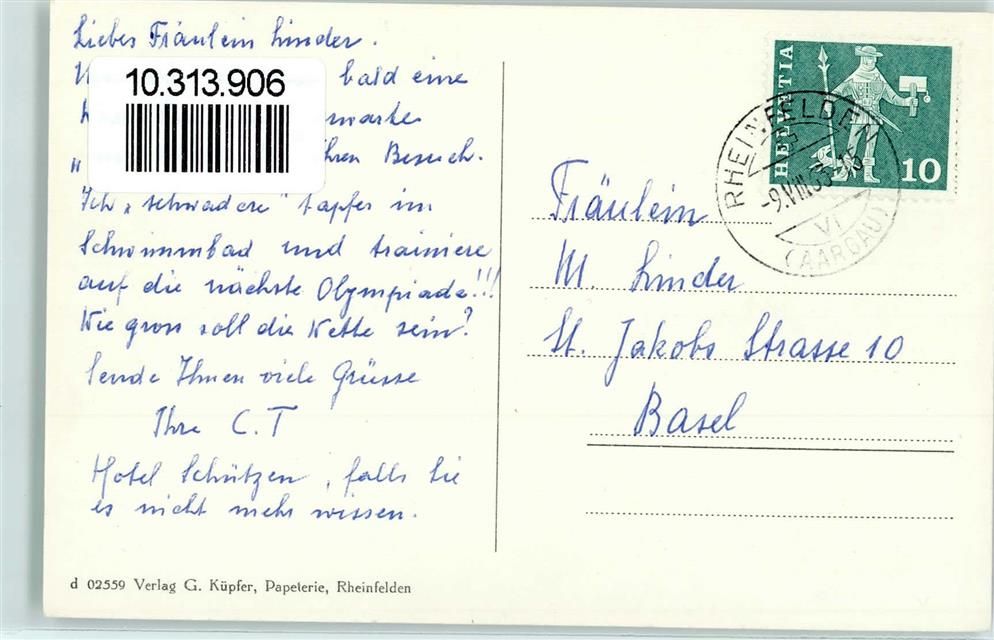 Liebes Fräulein Linder.
bald eine
10.313.906
warte
Ihren Besuch.
Ich „schwadere" tapfer im
Schwimmbad und trainiere
auf die nächste Olympiade!!!
Wie gross soll die Wette sein?
Sende Ihnen viele Grüsse
Ihre C. T
Hotel Schützen, falls Sie
es nicht mehr wissen.
d 02559 Verlag G. Küpfer, Papeterie, Rheinfelden
HELVETIA
10
RHEINFELDEN
VI
(AARGAU)
Fräulein
M. Linder
St. Jakobs Strasse 10
Basel